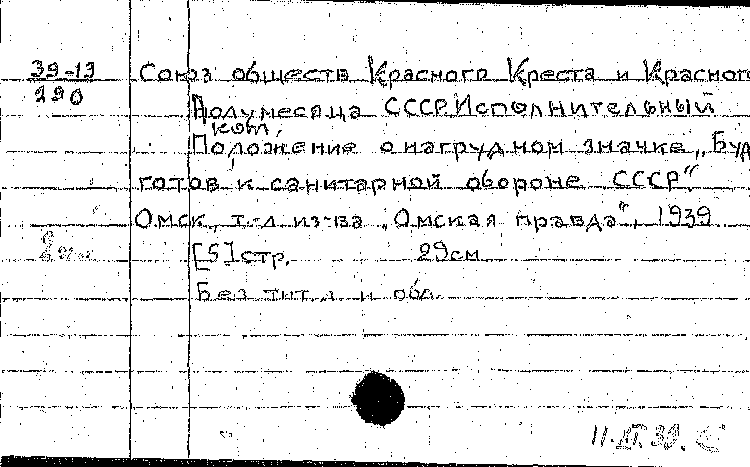 39-13
290
Союз обществ Красного Креста и Красного
Полумесяца СССР. Исполнительный
ком.
Положение о нагрудном значке „Буд
готов к санитарной обороне СССР“.
Омск, т.-л. из-ва „Омская правда“, 1939
[5] стр. 29 см
Без тит. л. и обл.